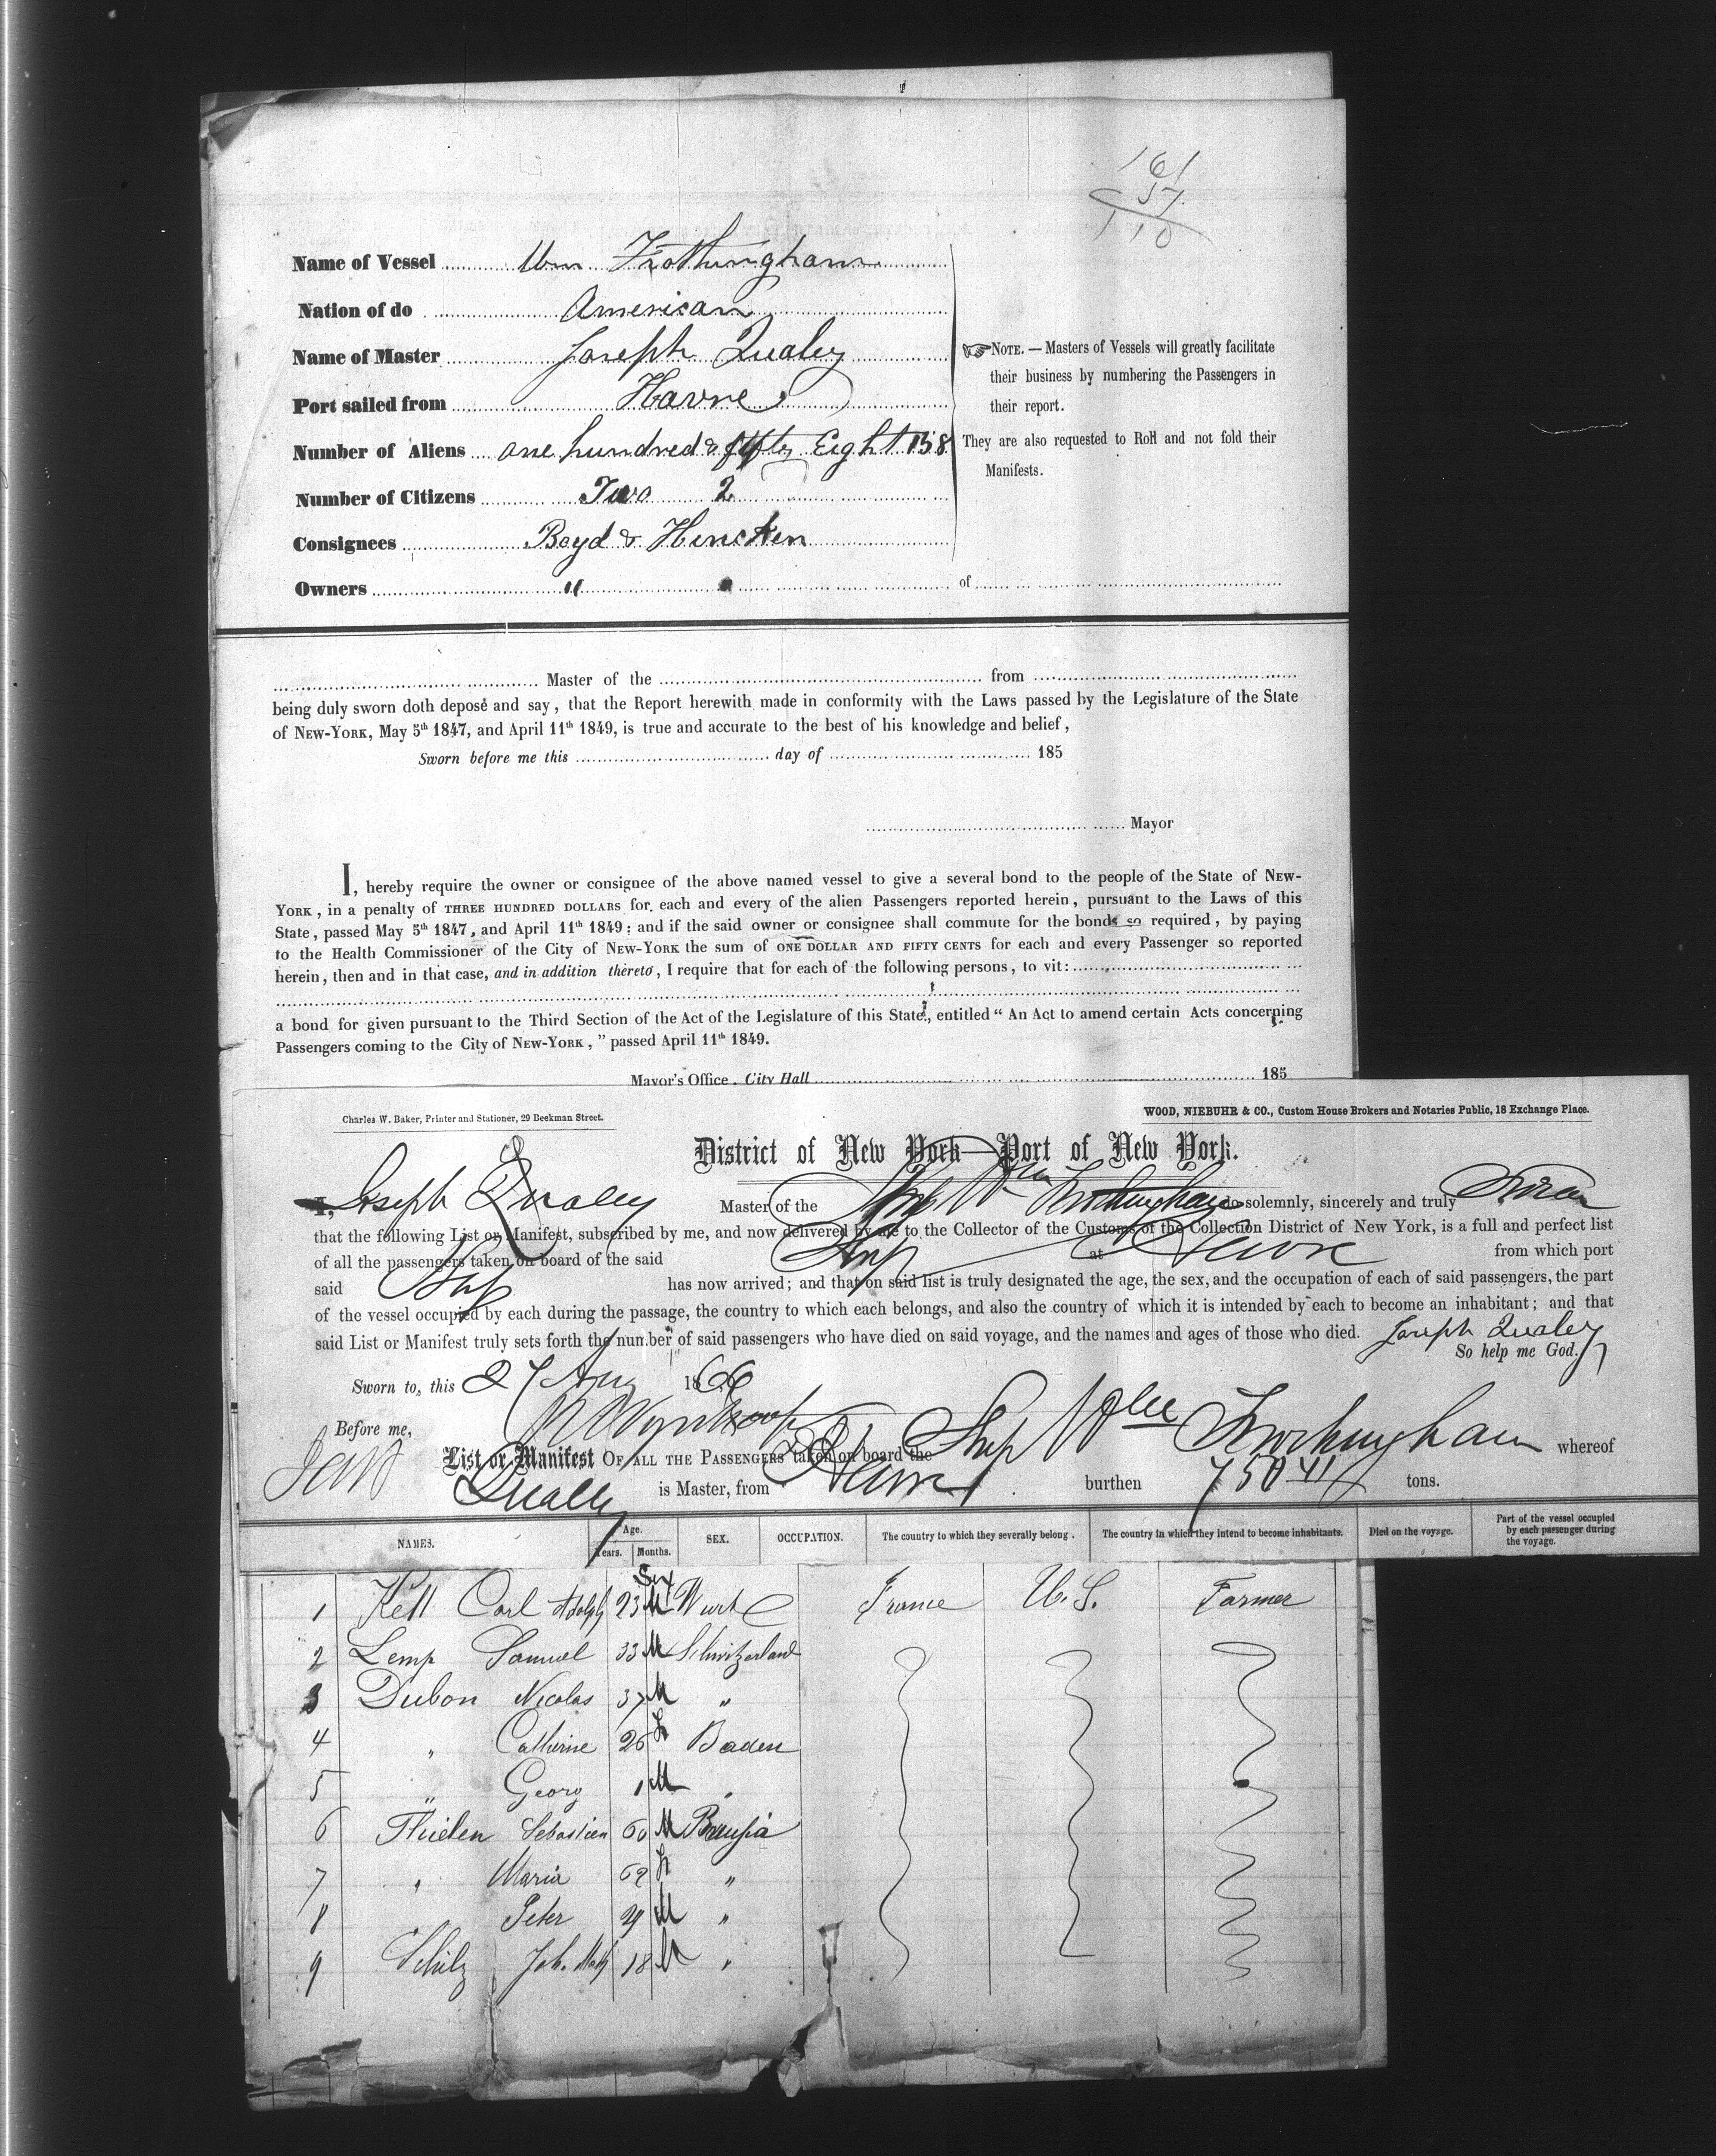 161
57
110
Name of Vessel Wm Frothingham
Nation of do American
Name of Master Joseph Qualey
Port sailed from Havre
Number of Aliens one hundred & fifty Eight 158
Number of Citizens Two 2
Consignees Boyd & Hincken
Owners " " of
☞ NOTE. — Masters of Vessels will greatly facilitate
their business by numbering the Passengers in
their report.
They are also requested to Roll and not fold their
Manifests.
Master of the from
being duly sworn doth depose and say, that the Report herewith made in conformity with the Laws passed by the Legislature of the State
of NEW-YORK, May 5th 1847, and April 11th 1849, is true and accurate to the best of his knowledge and belief,
Sworn before me this day of 185
Mayor
I, hereby require the owner or consignee of the above named vessel to give a several bond to the people of the State of NEW-
YORK, in a penalty of THREE HUNDRED DOLLARS for each and every of the alien Passengers reported herein, pursuant to the Laws of this
State, passed May 5th 1847, and April 11th 1849: and if the said owner or consignee shall commute for the bonds so required, by paying
to the Health Commissioner of the City of NEW-YORK the sum of ONE DOLLAR AND FIFTY CENTS for each and every Passenger so reported
herein, then and in that case, and in addition thereto, I require that for each of the following persons, to vit:
a bond for given pursuant to the Third Section of the Act of the Legislature of this State, entitled "An Act to amend certain Acts concerning
Passengers coming to the City of NEW-YORK," passed April 11th 1849.
Mayor's Office, City Hall 185
Charles W. Baker, Printer and Stationer, 29 Beekman Street.
WOOD, NIEBUHR & CO., Custom House Brokers and Notaries Public, 18 Exchange Place.
District of New York—Port of New York.
I, Joseph Qualey Master of the Ship Wm Frothingham do solemnly, sincerely and truly Swear
that the following List or Manifest, subscribed by me, and now delivered by me to the Collector of the Customs of the Collection District of New York, is a full and perfect list
of all the passengers taken on board of the said Ship at Havre from which port
said Ship has now arrived; and that on said list is truly designated the age, the sex, and the occupation of each of said passengers, the part
of the vessel occupied by each during the passage, the country to which each belongs, and also the country of which it is intended by each to become an inhabitant; and that
said List or Manifest truly sets forth the number of said passengers who have died on said voyage, and the names and ages of those who died. Joseph Qualey
So help me God.
Sworn to, this 27 Aug 1866
Before me,
List or Manifest OF ALL THE PASSENGERS taken on board the Ship Wm Frothingham whereof
Qually is Master, from Havre burthen 750 tons.
NAMES. Age. Years. Months. SEX. OCCUPATION. The country to which they severally belong. The country in which they intend to become inhabitants. Died on the voyage. Part of the vessel occupied by each passenger during the voyage.
Sex
1 Kell Carl Adolph 23 M Wurt France U.S. Farmer
2 Lemp Samuel 33 M Schwitzerland
3 Dubon Nicolas 37 M "
4 " Catherine 26 F Baden
5 " Georg 1 M "
6 Thielen Sebastien 60 M Prussia
7 " Maria 62 F "
8 Peter 29 M "
9 Schilz Joh. Math 18 M "